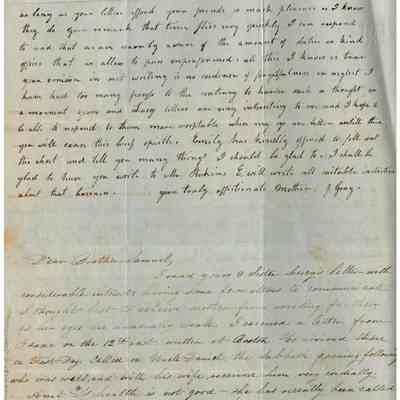 as long as your letters afford your friends so much pleasure as I know
they do you remark that time flies very quickly I can respond
to and that we are scarcely aware of the amount of duties or kind
offices that we allow to pass unperformed all this I know is true
your omission in not writing is no evidence of forgetfulness or neglect I
have had too many proofs to the contrary to harbor such a thought for
a moment yours and Lucy letters are very interesting to me and I hope to
be able to respond to them more acceptable when my eyes are better until then
you will excuse this brief epistle. Emily has kindly offered to fill out
the sheet and tell you many things I should be glad to. I shall be
glad to have you write to Mr Perkins E will write all suitable
about that business. your truly affectionate Mother. P Gray.
Dear Brother Samuel,
I read yours & Sister Lucy's letter with
considerable interest having some few items to communicate
I thought best to relieve mother from writing further
as her eyes are quite weak. I received a letter from
Isaac on the 12th inst. written at Boston He arrived there
on Fast Day. Called on Uncle Daniel the Sabbath following
who was well, and with his wife received him very cordially.
Aunt health is not good - she has recently been called